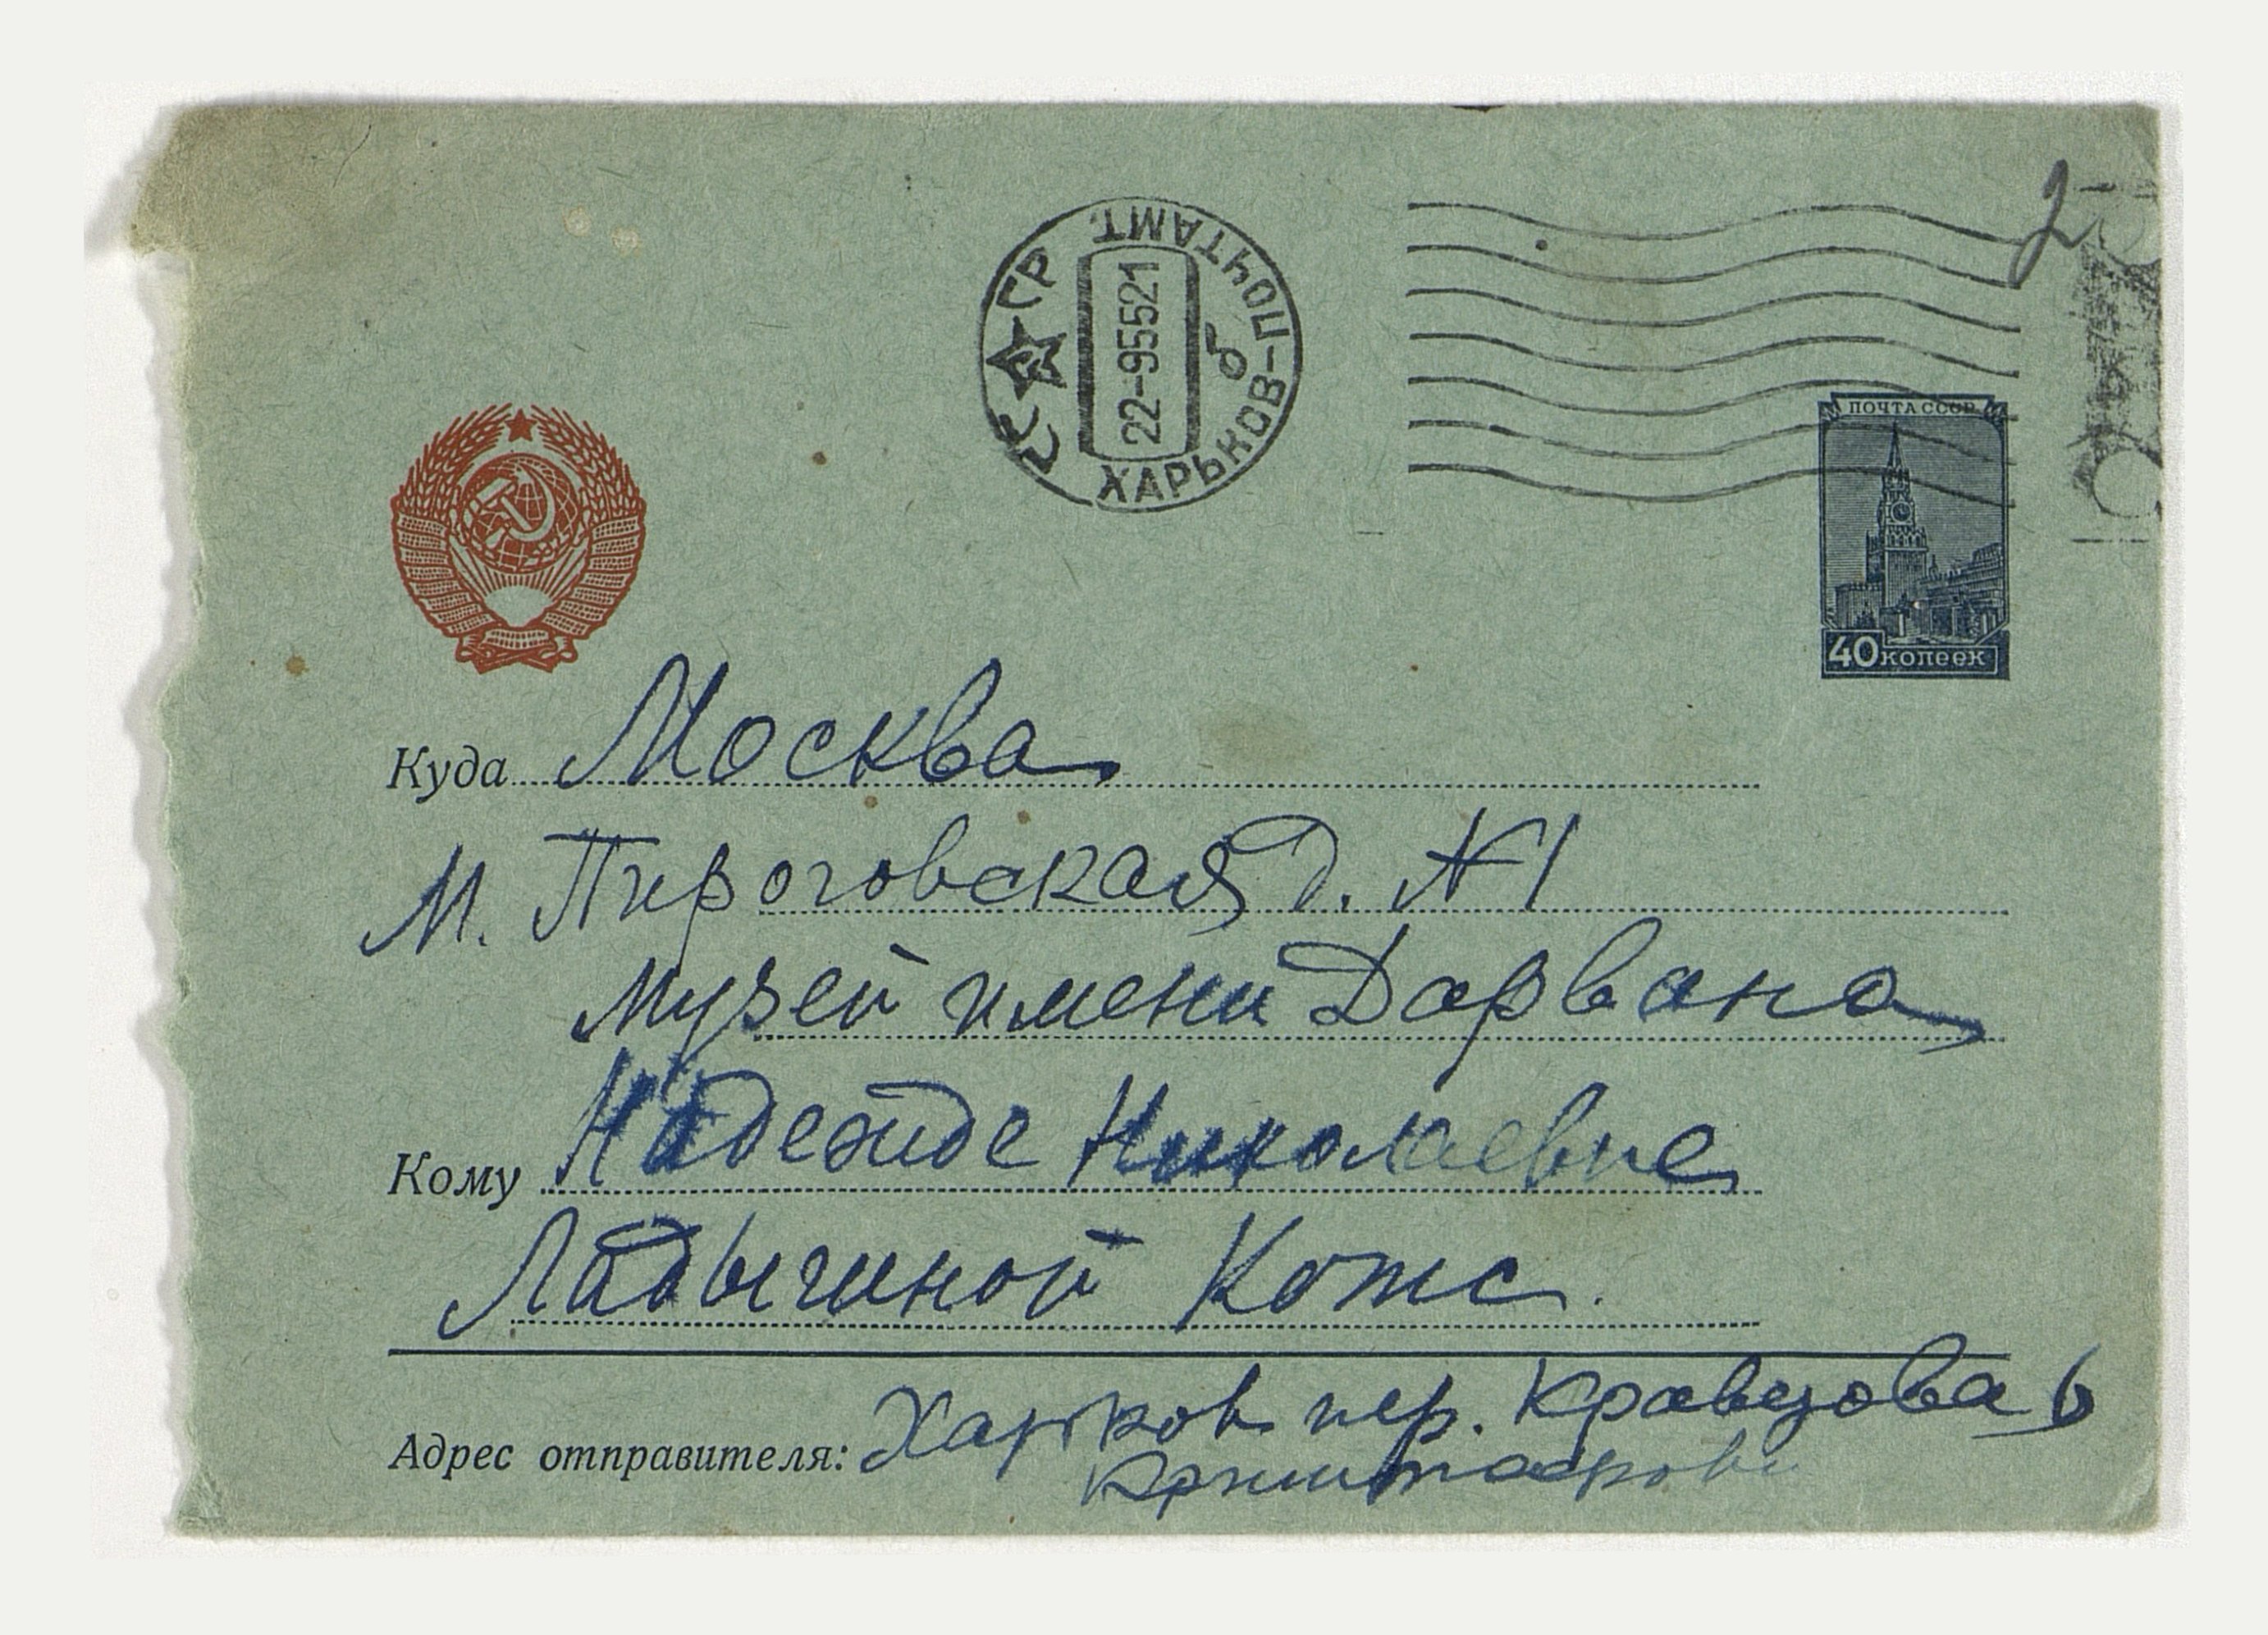 СССР
ХАРЬКОВ-ПОЧТАМТ.
22-955521
б
2
ПОЧТА СССР
40 копеек
Куда Москва
М. Пироговская Д. N 1
музей имени Дарвина
Кому Надежде Николаевне
Ладыгиной Котс.
Адрес отправителя: Харьков пер. Кравцова 6